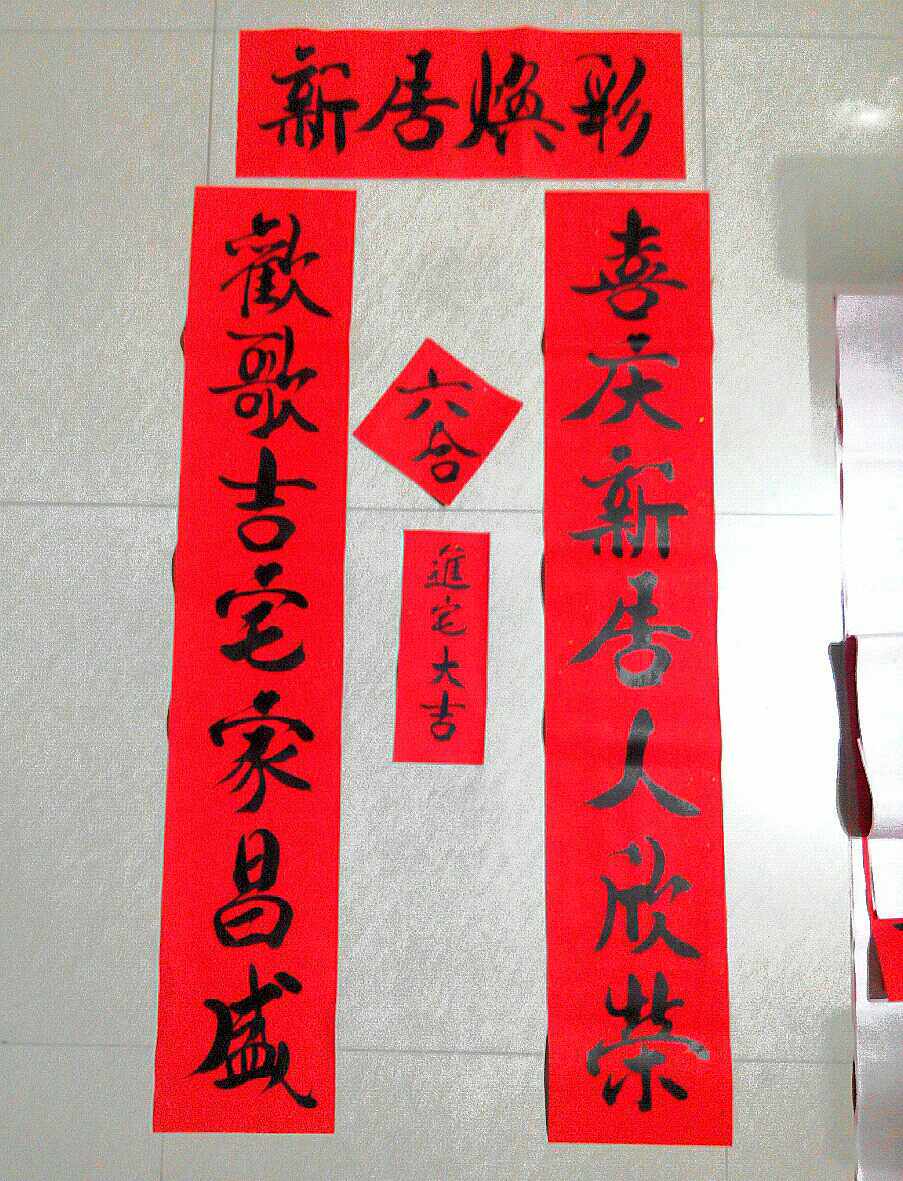 新居焕彩
喜庆新居人欣荣
歡歌吉宅家昌盛
六合
進宅大吉